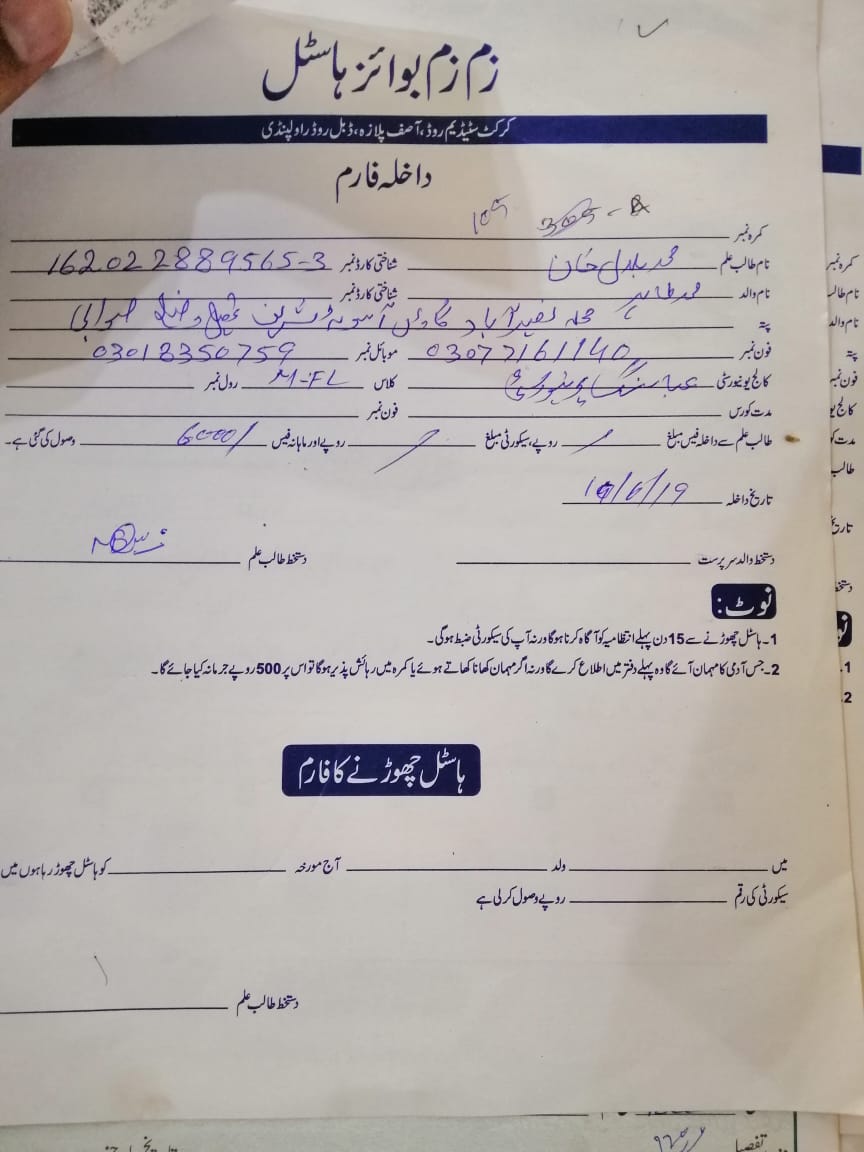 زم زم بوائز ہاسٹل
کرکٹ سٹیڈیم روڈ، آصف پلازہ، ڈبل روڈ راولپنڈی
داخلہ فارم
کمرہ نمبر 109
نام طالب علم محمد بلال خان شناختی کارڈ نمبر 162022889565-3
نام والد محمد طاہر شناختی کارڈ نمبر
پتہ محلہ نصیر آباد گاؤں شریف تحصیل و ضلع صوابی
فون نمبر 03077161140 موبائل نمبر 03018350759
کالج یونیورسٹی کلاس M-FL رول نمبر
مدت کورس فون نمبر
طالب علم سے داخلہ فیس مبلغ روپے، سیکورٹی مبلغ روپے اور ماہانہ فیس 6000/ وصول کی گئی ہے۔
تاریخ داخلہ /6/19
دستخط والد سرپرست دستخط طالب علم
نوٹ:
1۔ ہاسٹل چھوڑنے سے 15 دن پہلے انتظامیہ کو آگاہ کرنا ہوگا ورنہ آپ کی سیکورٹی ضبط ہوگی۔
2۔ جس آدمی کا مہمان آئے گا وہ پہلے دفتر میں اطلاع کرے گا ورنہ اگر مہمان کھانا کھاتے ہوئے یا کمرہ میں رہائش پذیر ہوگا تو اس پر 500 روپے جرمانہ کیا جائے گا۔
ہاسٹل چھوڑنے کا فارم
میں ولد آج مورخہ کو ہاسٹل چھوڑ رہا ہوں میں
سیکورٹی کی رقم روپے وصول کر لی ہے
دستخط طالب علم
کمرہ نمبر
نام طالب
نام والد
پتہ
فون نمبر
کالج یو
مدت کو
طالب
تاریخ
دستخط
1.
2.
تفصیل